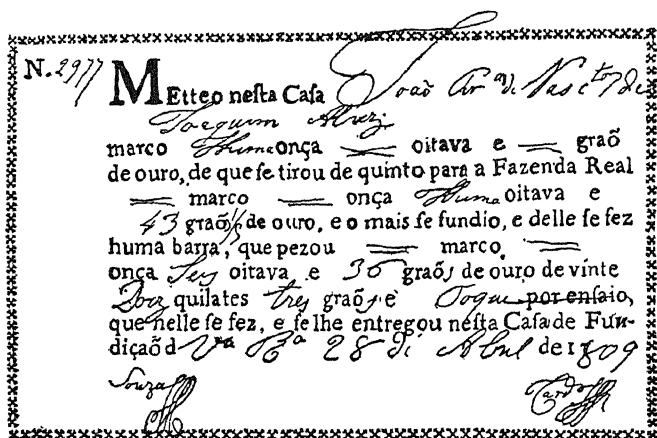 N. 2977 MEtteo neſta Caſa João Per.ª de Vasc.tos de
Joaquim Alvez
marco Huma onça == oitava e == graõ
de ouro, de que ſe tirou de quinto para a Fazenda Real
== marco == onça Huma oitava e
43 graõ 1/5 de ouro, e o mais ſe fundio, e delle ſe fez
huma barra, que pezou == marco ==
onça Seis oitava e 36 graõs de ouro de vinte
Doiz quilates tres graõs e Toque por enſaio,
que nelle ſe fez, e ſe lhe entregou neſta Caſa de Fun-
diçaõ d V.ª R.ª 28 de Abril de 1809
Souza Cardoso